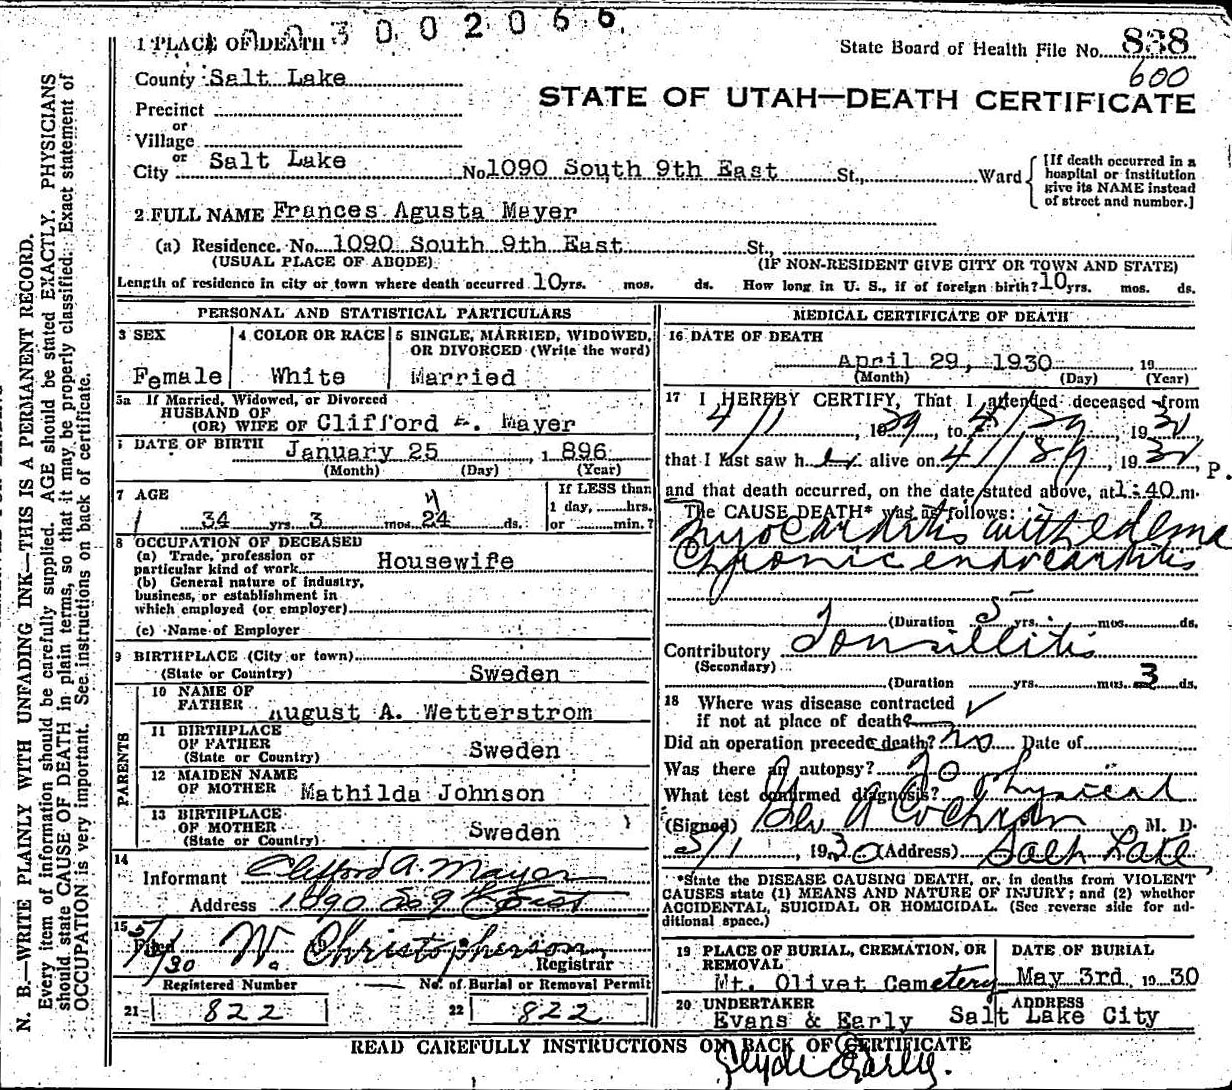 3 0 0 2 0 6 6
1 PLACE OF DEATH
State Board of Health File No. 838
600
County Salt Lake
STATE OF UTAH—DEATH CERTIFICATE
Precinct
or
Village
or
City Salt Lake No. 1090 South 9th East St., Ward
[If death occurred in a hospital or institution give its NAME instead of street and number.]
2 FULL NAME Frances Agusta Mayer
(a) Residence. No. 1090 South 9th East St.,
(USUAL PLACE OF ABODE) (IF NON-RESIDENT GIVE CITY OR TOWN AND STATE)
Length of residence in city or town where death occurred 10 yrs. mos. ds. How long in U. S., if of foreign birth? 10 yrs. mos. ds.
PERSONAL AND STATISTICAL PARTICULARS
3 SEX
Female
4 COLOR OR RACE
White
5 SINGLE, MARRIED, WIDOWED,
OR DIVORCED (Write the word)
Married
5a If Married, Widowed, or Divorced
HUSBAND OF
(OR) WIFE OF Clifford Mayer
DATE OF BIRTH January 25, 1896
(Month) (Day) (Year)
7 AGE
34 yrs. 3 mos. 24 ds.
If LESS than
1 day, hrs.
or min.?
8 OCCUPATION OF DECEASED
(a) Trade, profession or
particular kind of work Housewife
(b) General nature of industry,
business, or establishment in
which employed (or employer)
(c) Name of Employer
9 BIRTHPLACE (City or town)
(State or Country) Sweden
PARENTS
10 NAME OF
FATHER August A. Wetterstrom
11 BIRTHPLACE
OF FATHER
(State or Country) Sweden
12 MAIDEN NAME
OF MOTHER Mathilda Johnson
13 BIRTHPLACE
OF MOTHER
(State or Country) Sweden
14
Informant Clifford A. Mayer
Address 1090 So 9 East
15 5/1/30 Filed W. Christopherson
Registrar
Registered Number No. of Burial or Removal Permit
21 822 22 822
MEDICAL CERTIFICATE OF DEATH
16 DATE OF DEATH
April 29, 1930 19
(Month) (Day) (Year)
17 I HEREBY CERTIFY, That I attended deceased from
4/1, 19 to 19
that I last saw her alive on 19
and that death occurred, on the date stated above, at 1:40 P. m.
The CAUSE DEATH* was as follows:
Myocarditis with edema
Chronic endocarditis
(Duration 5 yrs. mos. ds.
Contributory Tonsillitis
(Secondary)
(Duration yrs. mos. 3 ds.
18 Where was disease contracted
if not at place of death?
Did an operation precede death? no Date of
Was there an autopsy? no
What test confirmed diagnosis? Physical
(Signed) A Cochran M. D.
5/1, 1930 (Address) Salt Lake
*State the DISEASE CAUSING DEATH, or, in deaths from VIOLENT
CAUSES state (1) MEANS AND NATURE OF INJURY; and (2) whether
ACCIDENTAL, SUICIDAL OR HOMICIDAL. (See reverse side for ad-
ditional space.)
19 PLACE OF BURIAL, CREMATION, OR
REMOVAL
Mt. Olivet Cemetery
DATE OF BURIAL
May 3rd, 1930
20 UNDERTAKER
Evans & Early
ADDRESS
Salt Lake City
READ CAREFULLY INSTRUCTIONS ON BACK OF CERTIFICATE
Clyde Early.
N. B.—WRITE PLAINLY WITH UNFADING INK—THIS IS A PERMANENT RECORD.
Every item of information should be carefully supplied. AGE should be stated EXACTLY. PHYSICIANS
should state CAUSE OF DEATH in plain terms, so that it may be properly classified. Exact statement of
OCCUPATION is very important. See instructions on back of certificate.